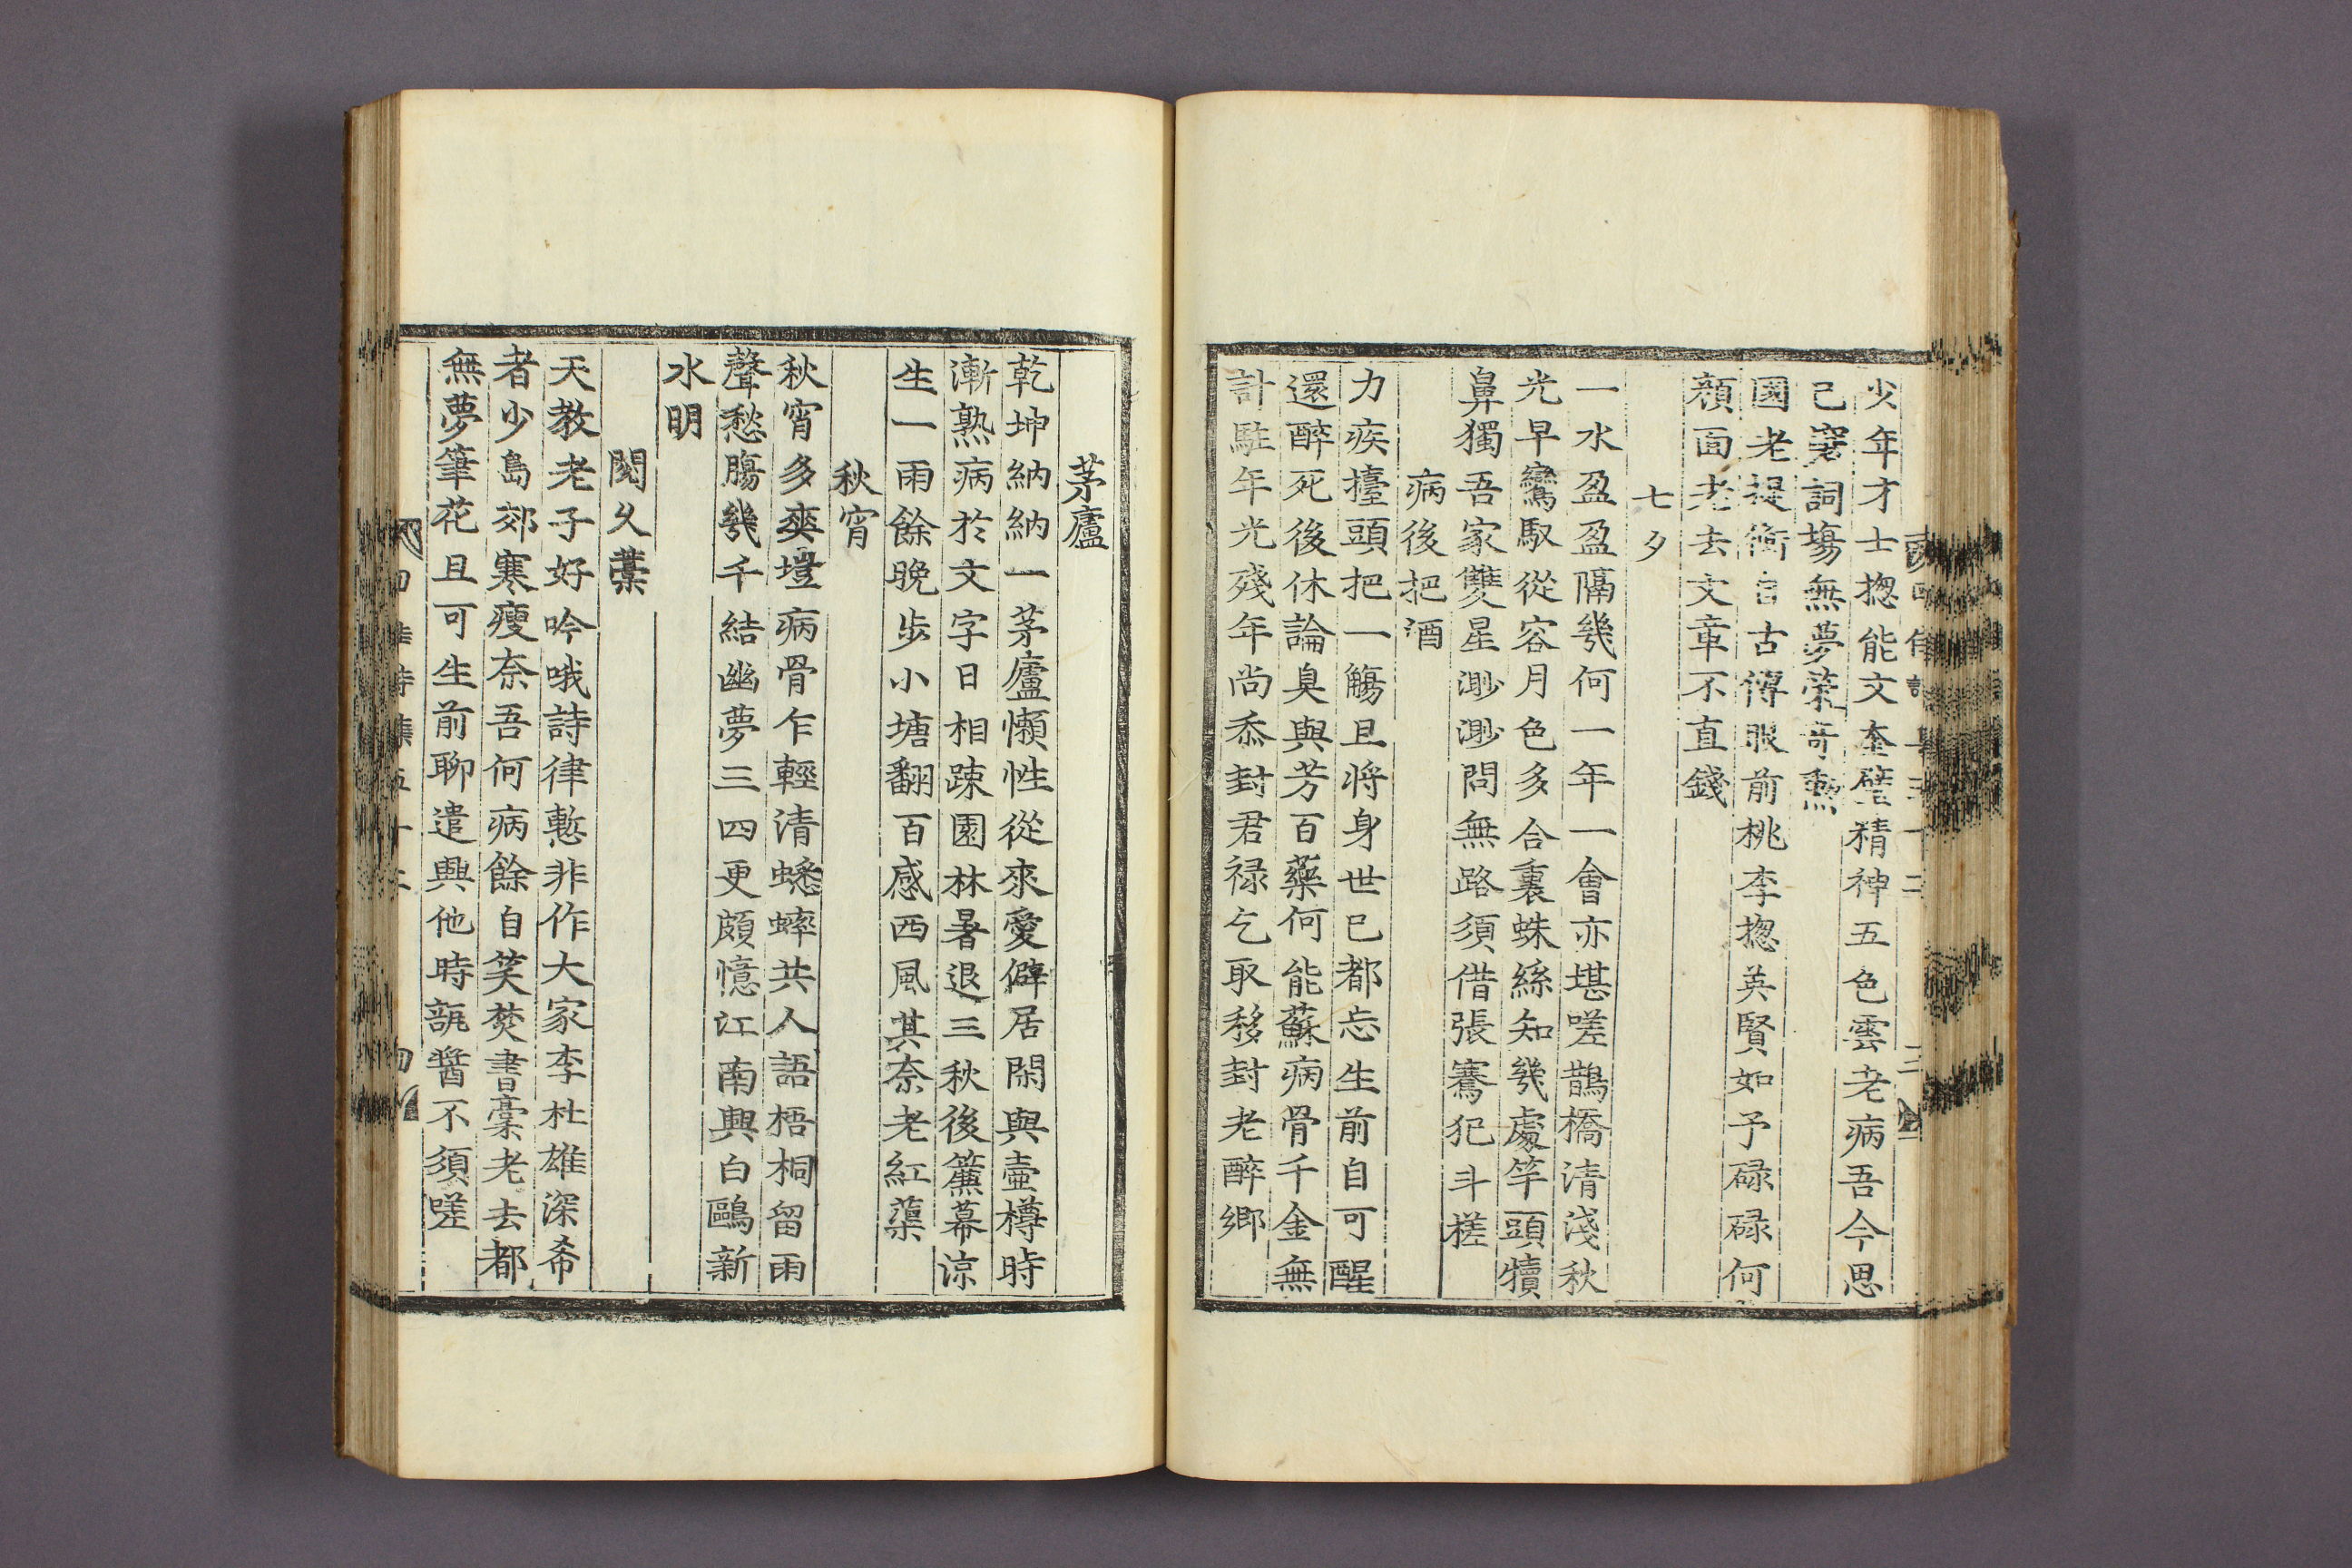 少年才士揔能文奎壁精神五色雲老病吾今思
己窮詞場無夢策奇勲
國老提衡自古傳眼前桃李揔英賢如予碌碌何
顔面老去文章不直錢
七夕
一水盈盈隔幾何一年一會亦堪嗟鵲橋清淺秋
光早鸞馭從容月色多合裏蛛絲知幾處竿頭犢
鼻獨吾家雙星渺渺問無路須借張騫犯斗槎
病後把酒
力疾擡頭把一觴且將身世已都忘生前自可醒
還醉死後休論臭與芳百藥何能蘇病骨千金無
計駐年光殘年尚忝封君禄乞取移封老醉鄉
茅廬
乾坤納納一茅廬懶性從來愛僻居閑與壷樽時
漸熟病於文字日相踈園林暑退三秋後簾幕凉
生一雨餘晚步小塘翻百感西風其奈老紅蕖
秋宵
秋宵多爽塏病骨乍輕清蟋蟀共人語梧桐留雨
聲愁膓幾千結幽夢三四更頗憶江南興白鷗新
水明
閱乆藁
天教老子好吟哦詩律慙非作大家李杜雄深希
者少島郊寒瘦奈吾何病餘自笑焚書藁老去都
無夢筆花且可生前聊遣興他時瓿醬不須嗟